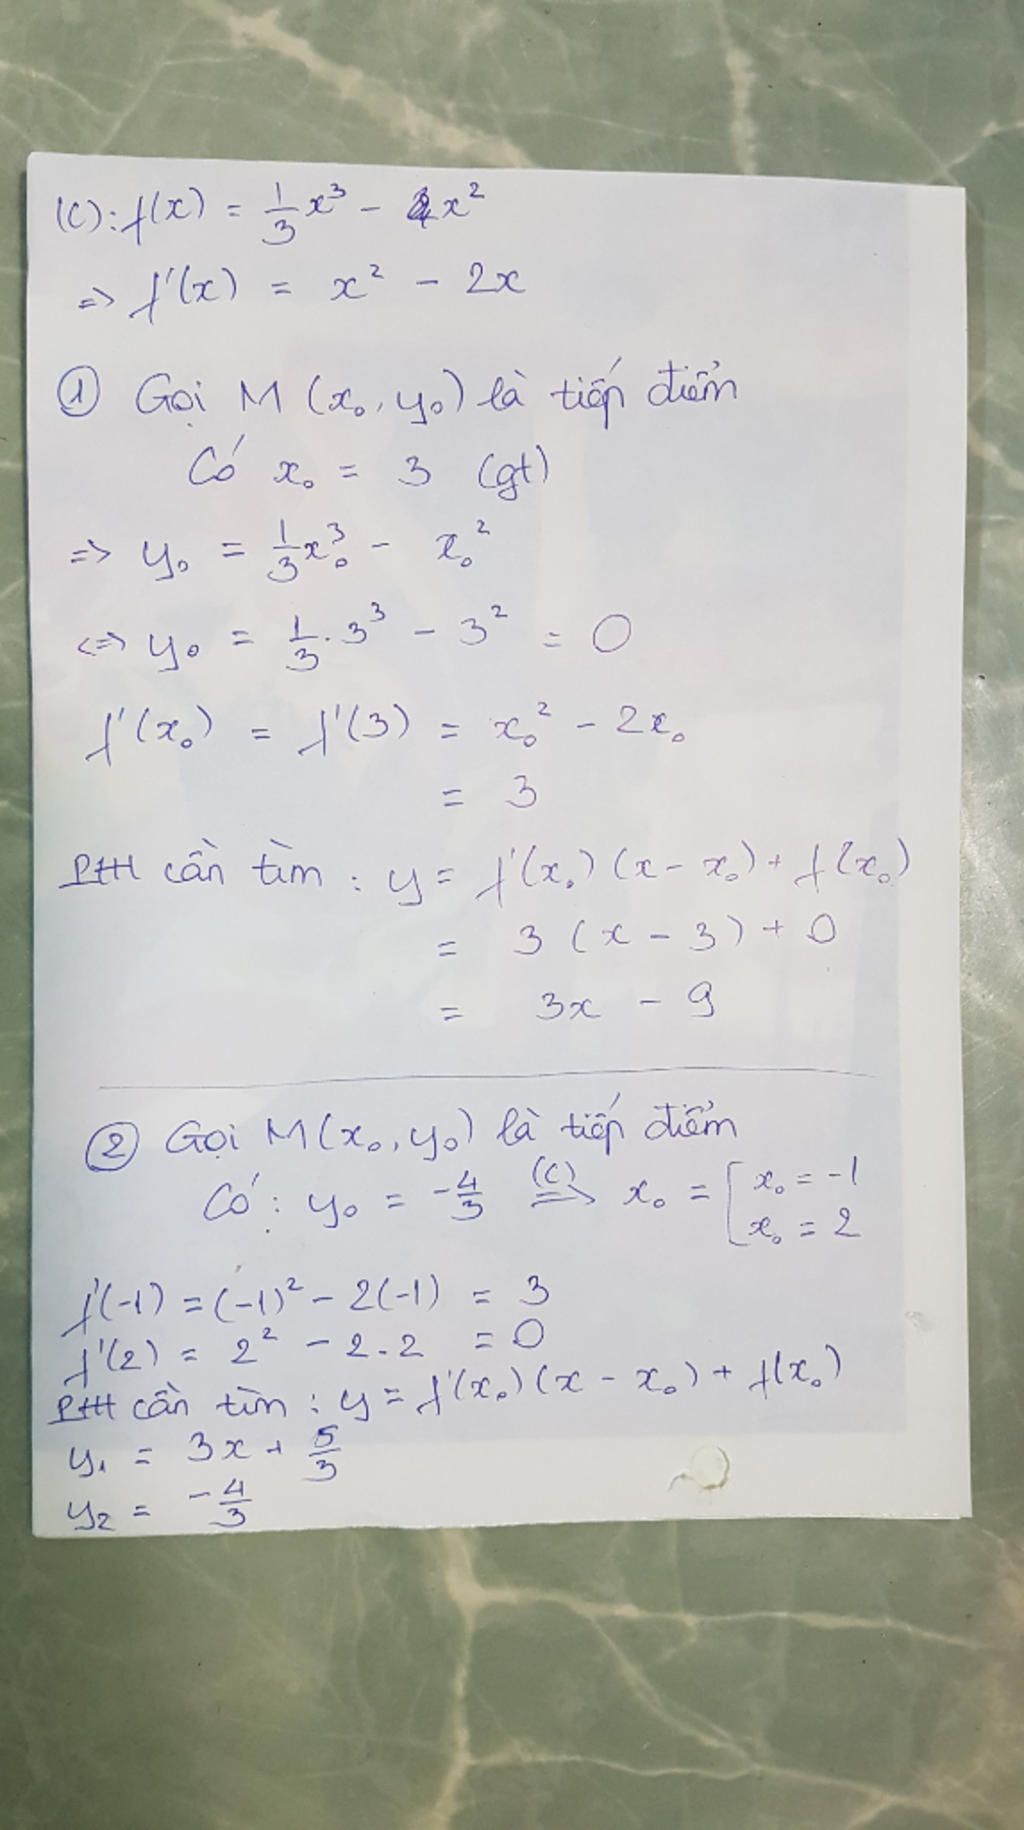 (C): f(x) = 1/3 x³ - x²
=> f'(x) = x² - 2x
① Gọi M (x₀, y₀) là tiếp điểm
Có x₀ = 3 (gt)
=> y₀ = 1/3 x₀³ - x₀²
<=> y₀ = 1/3 . 3³ - 3² = 0
f'(x₀) = f'(3) = x₀² - 2x₀
= 3
Ptt cần tìm : y = f'(x₀) (x - x₀) + f(x₀)
= 3 (x - 3) + 0
= 3x - 9
② Gọi M(x₀, y₀) là tiếp điểm
Có : y₀ = -4/3 (C) => x₀ = [ x₀ = -1
x₀ = 2
f'(-1) = (-1)² - 2(-1) = 3
f'(2) = 2² - 2.2 = 0
Ptt cần tìm : y = f'(x₀) (x - x₀) + f(x₀)
y₁ = 3x + 5/3
y₂ = -4/3